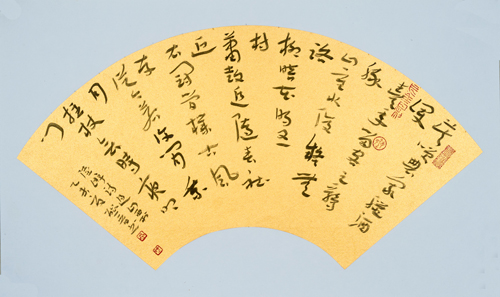 莫笑農家臘酒
渾
豐年留客足雞
豚
山重水複疑無
路
柳暗花明又一
村
簫鼓追隨春社
近
衣冠簡樸古風
存
從今若許閑乘
月
拄杖無時夜叩
門
陸游詩遊山西村